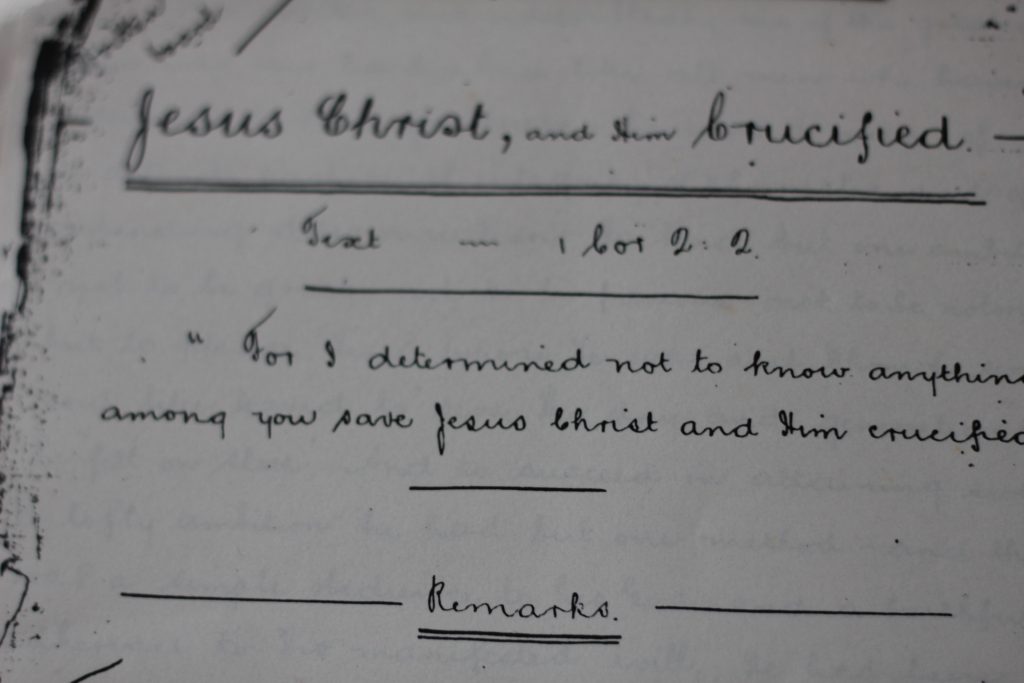 Jesus Christ, and Him Crucified. —
Text — 1 Cor 2: 2.
" For I determined not to know anything
among you save Jesus Christ and Him crucified
Remarks.